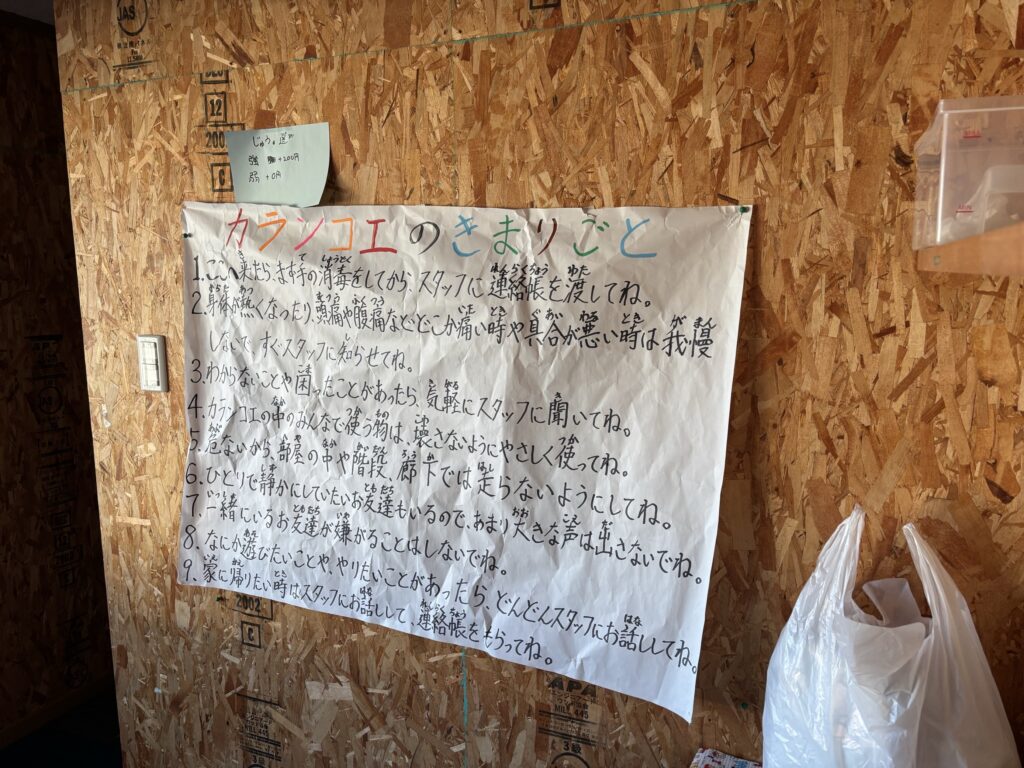 JAS
12
200
C
強 +200円
弱 +0円
カランコエのきまりごと
1.ここへ来たら、まず手の消毒をしてから、スタッフに連絡帳を渡してね。
2.身体が熱くなったり、頭痛や腹痛などどこか痛い時や具合が悪い時は我慢
しないで、すぐスタッフに知らせてね。
3.わからないことや困ったことがあったら、気軽にスタッフに聞いてね。
4.カランコエの中のみんなで使う物は、壊さないようにやさしく使ってね。
5.危ないから、部屋の中や階段、廊下では走らないようにしてね。
6.ひとりで静かにしていたいお友達もいるので、あまり大きな声は出さないでね。
7.一緒にいるお友達が嫌がることはしないでね。
8.なにか遊びたいことや、やりたいことがあったら、どんどんスタッフにお話ししてね。
9.家に帰りたい時はスタッフにお話しして、連絡帳をもらってね。
2002
C
APA
3級